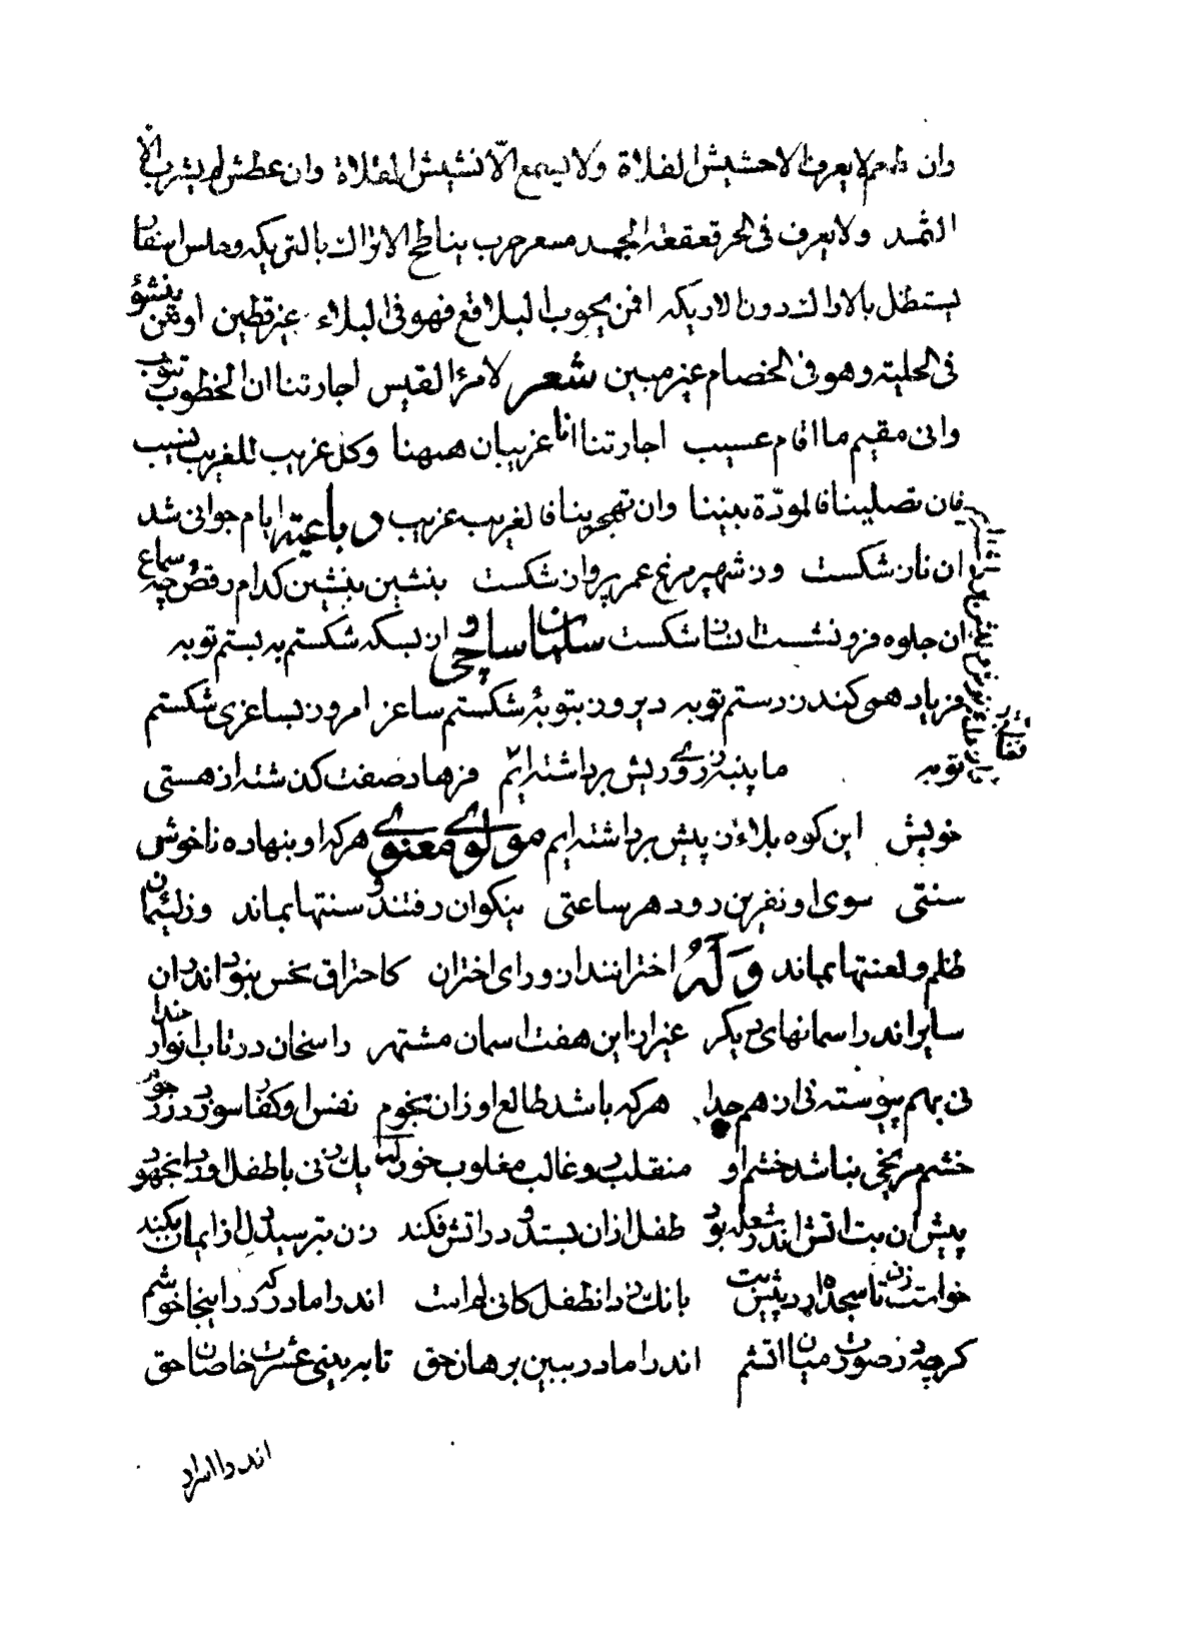 وان طعم لا يعرف الا حشيش الفلاة ولا يسمع الّا نشيش المقلاة وان عطش لم يشرب الّا
الثمد ولا يعرف فى الحر قعقعة الجمد مسعر حرب يناطح الاتراك بالتريكه وحلس
يستظل بالاراك دون الاريكه افمن يجوب البلاقع فهو فى البلاء غير قطين اومن ينشؤ
فى الحلية وهو فى الخصام غير مبين شعر لامرئ القيس اجارتنا ان الخطوب تنوب
وانى مقيم ما اقام عسيب اجارتنا انا غريبان ههنا وكل غريب للغريب نسيب
فان تصلينا فالمودّة بيننا وان تهجرينا فالغريب غريب رباعيه ايام جوانى شد
ازان ناز شكست وز شهپر مرغ عمر پرواز شكست بنشين بنشين كدام رقص وچه سماع
ان جلوه فرو نشست ان ناز شكست سلمان ساوجى از بسكه شكستم به بستم توبه
فرياد همى كند ز دستم توبه ديروز بتوبۀ شكستم ساغر امروز بساغرى شكستم
توبه ما پنبه ز روى ريش برداشته ايم فرهاد صفت كذشته از هستى
خويش اين كوه بلا ز پيش برداشته ايم مولوى معنوى هركه او بنهاده ناخوش
سنتى سوى او نفرين رود هر ساعتى نيكوان رفتند و سنتها بماند وز لئيمان
ظلم و لعنتها بماند وله اخترانند از وراى اختران كاحتراق نحس نبود اندران
سايراند در اسمانهاى ديكر غير ازين هفت اسمان مشتهر راسخان در تاب انوار خدا
نى بهم پيوسته نى از هم جدا هركه باشد طالع او زان نجوم نفس او كفار سوزد در رجوم
خشم مريخى نباشد خشم او منقلب رو غالب مغلوب خو وله يك زنى با طفل اورد ان جهود
پيش ان بت اتش اندر شعله بود طفل ازان بستد و در اتش فكند زن بترسيد و دل از ايمان بكند
خواست زن تا سجده ارد پيش بت بانك زد ان طفل كانى لم امت اندرا مادر كه در اينجا خوشم
كرچه در صورت ميان اتشم اندرا مادر ببين برهان حق تا به بينى عشرت خاصان حق
اندرا اسرار